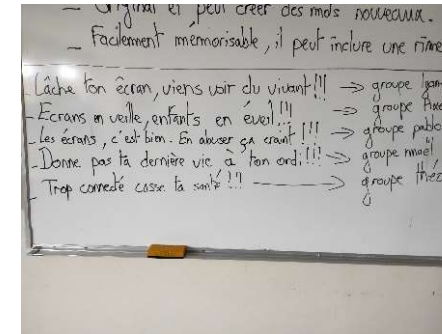 _ Original et peut créer des mots nouveaux.
_ Facilement mémorisable, il peut inclure une rime
_ Lâche ton écran, viens voir du vivant!!! → groupe
_ Ecrans en veille, enfants en éveil!!! → groupe
_ Les écrans, c'est bien. En abuser ça craint!!! → groupe pablo
_ Donne pas ta dernière vie à ton ordi!!! → groupe
_ Trop connecté casse ta santé!!! → groupe